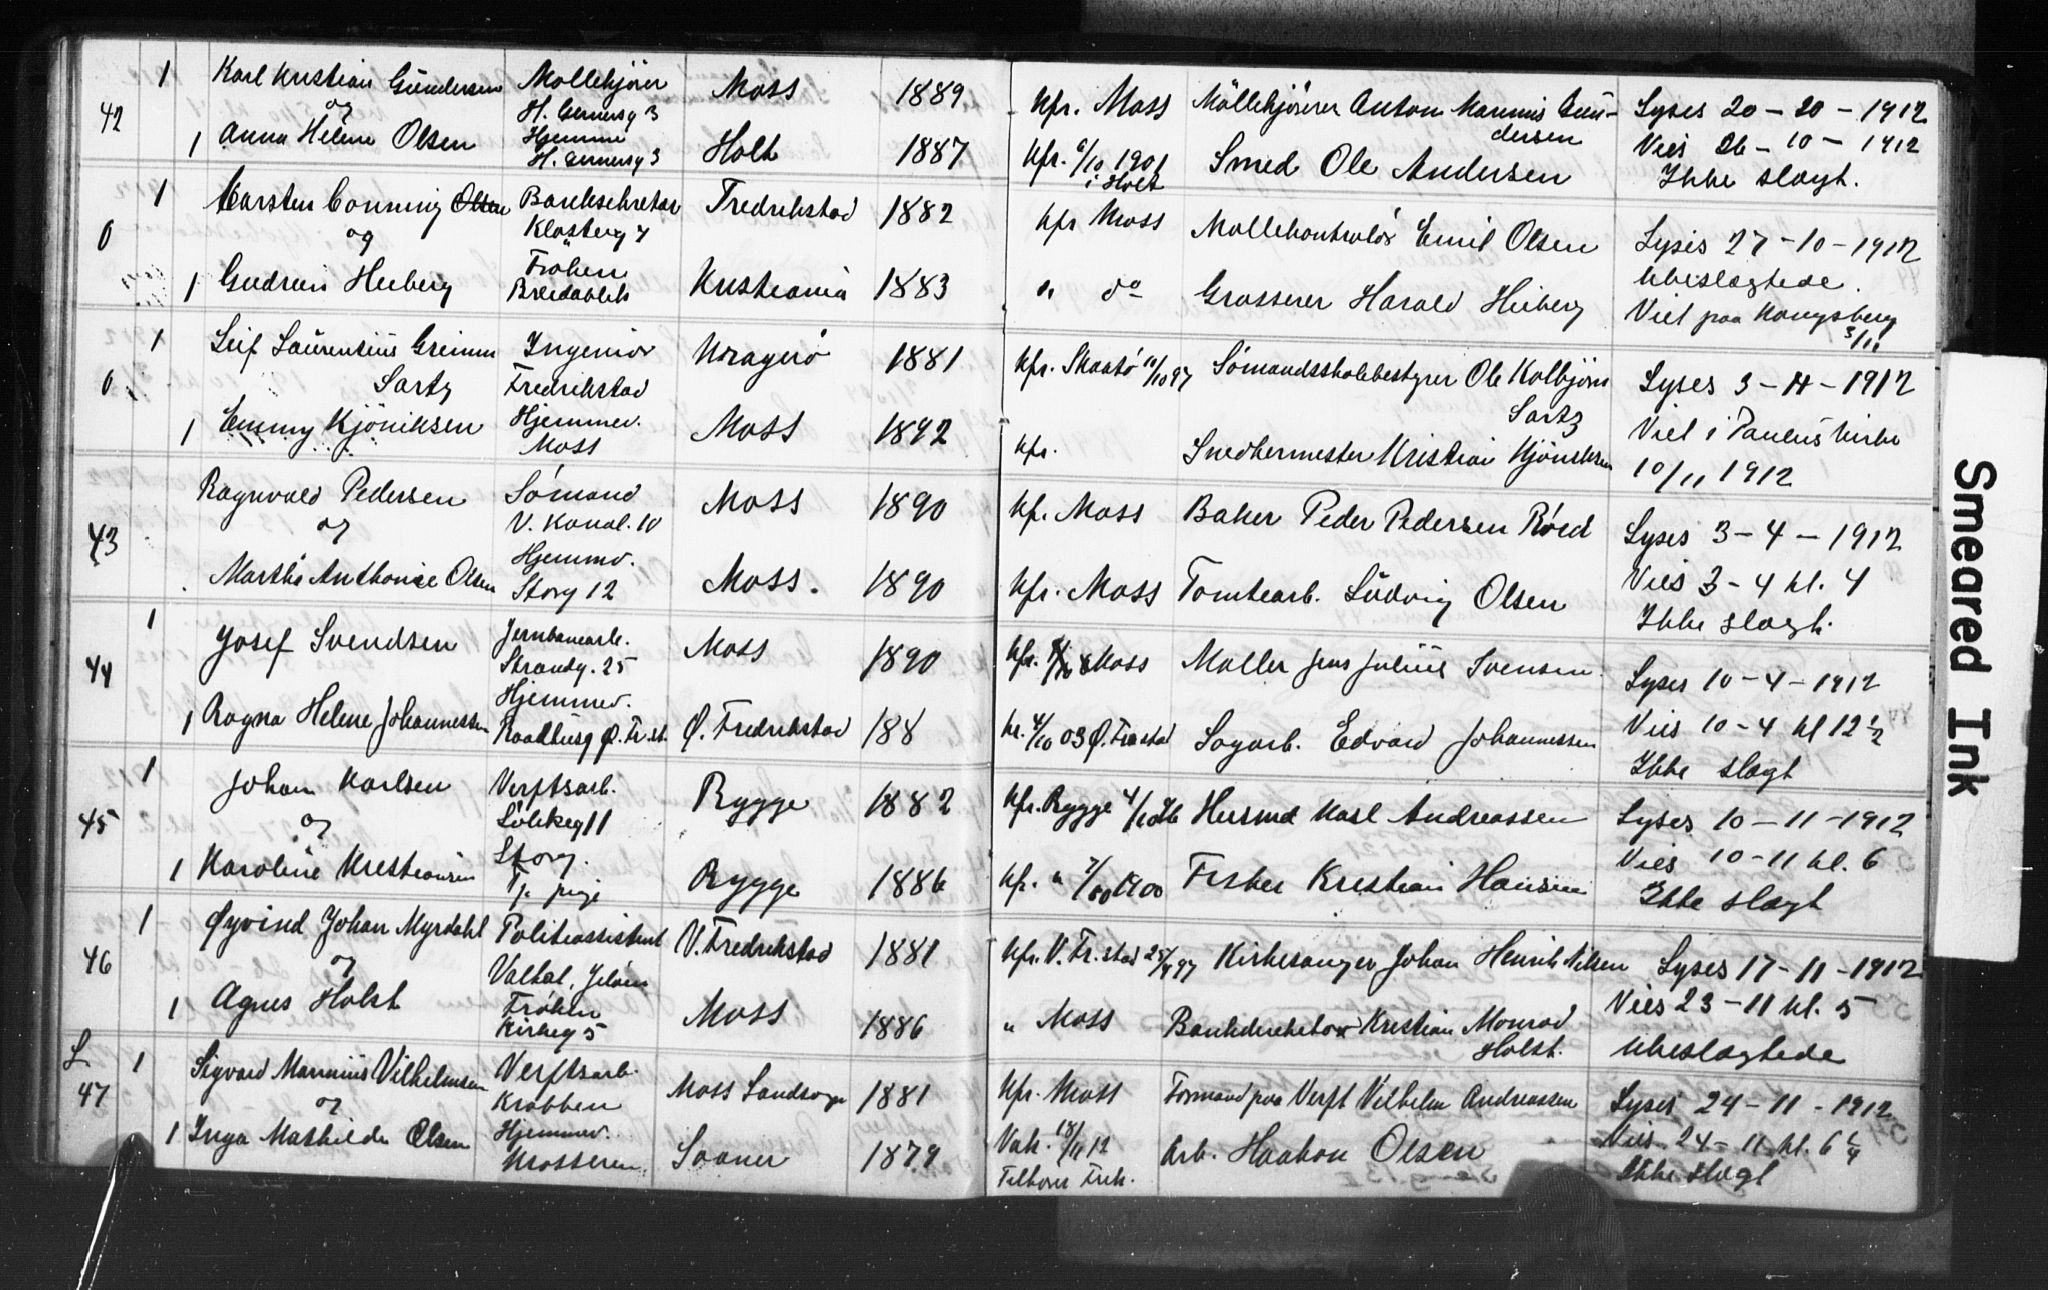 42 1 Karl Kristian Gundersen Møllekjører Moss 1889 Kfr. Moss Møllekjører Anton Marinus Gun- Lyses 20 - 20 - 1912
og H. Gernersg 3 dersen
1 Anna Helene Olsen Hjemme Holt 1887 Kfr. 6/10 1901 Smed Ole Andersen Vies - 10 - 1912
H. Gernersg 3 i Holt Ikke slægt.
0 1 Karsten Conning Olsen Banksekretær Fredrikstad 1882 Kfr Moss Møllekontrolør Emil Olsen Lyses 27 - 10 - 1912
og Klosterg 7 Ubeslægtede.
1 Gudrun Heiberg Frøken Kristiania 1883 " do Grosserer Harald Heiberg Viet paa Kongsberg
Bredablik 3/11
0 1 Leif Laurentius Grimm Ingeniør Kragerø 1881 Kfr. Skaatø 10/10 97 Sømandsskolebestyrer Ole Kolbjørn Lyses 3 - 11 - 1912
Sartz Fredrikstad Sartz
1 Emmy Kjøniksen Hjemmev. Moss 1892 Kfr. Snedkermester Kristian Kjøniksen Viet i Paulus Kirke
Moss 10/11 1912
43 Ragnvald Pedersen Sømand Moss 1890 Kf. Moss Baker Peder Pedersen Rød Lyses 3 - 4 - 1912
og V. Kanal. 10
Marthe Anthonie Olsen Hjemmv. Moss. 1890 Kfr. Moss Tomtearb. Ludvig Olsen Vies 3 - 4 kl. 4
Storg 12 Ikke slægt.
44 1 Josef Svendsen Jernbanearb. Moss 1890 Kfr. Moss Møller Jens Julius Svensen. Lyses 10 - 4 - 1912
Strandg. 25
1 Ragna Helene Johannessen Hjemmev. Ø. Fredrikstad 188 Kr. 4/10 03 Ø. Frestad Sagarb. Edvard Johannessen Vies 10 - 4 kl 12 1/2
Raadhusg Ø. Fr.st. Ikke slægt
45 1 Johan Karlsen Verftsarb. Rygge 1882 Kfr. Rygge 4/10 Husmd Karl Andreassen Lyses 10 - 11 - 1912
og 11
1 Karoline Kristiansen Storg. Rygge 1886 Kfr. " 7/10 1900 Fisker Kristian Hansen Vies 10 - 11 kl. 6
Tj. pige Ikke slægt
46 1 Øyvind Johan Myrdahl Politiassistent V. Fredrikstad 1881 Kfr. V. Fr.stad 25/4 97 Kirkesanger Johan Henrik Nilsen Lyses 17 - 11 - 1912
og Valhal, Jeløen
1 Agnes Holst Frøken Moss 1886 " Moss Bankdirektør Kristian Monrad Vies 23 - 11 kl. 5
Kirkeg 5 Holst. Ubeslægtede
L 47 1 Sigvard Marinius Vilhelmsen Verftsarb. Moss Landsogn 1881 Kfr. Moss Formand paa Verft Vilhelm Andreassen Lyses 24 - 11 - 1912
og Krabben
1 Inga Mathilde Olsen Hjemmev. Saaner 1879 Vak. 18/11 12 Arb. Haakon Olsen Vies 24 - 11 kl. 6 1/4
Krosseren. Tilhører Frik. Ikke slægt
Smeared Ink